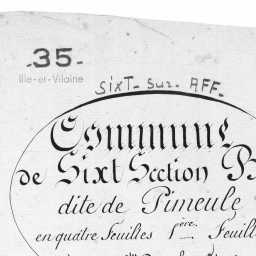 -35-
Ille-et-Vilaine
SIXT-Sur-AFF-
Commune
de Sixt Section B
dite de Pimeule
en quatre Feuilles 1ère Feuill